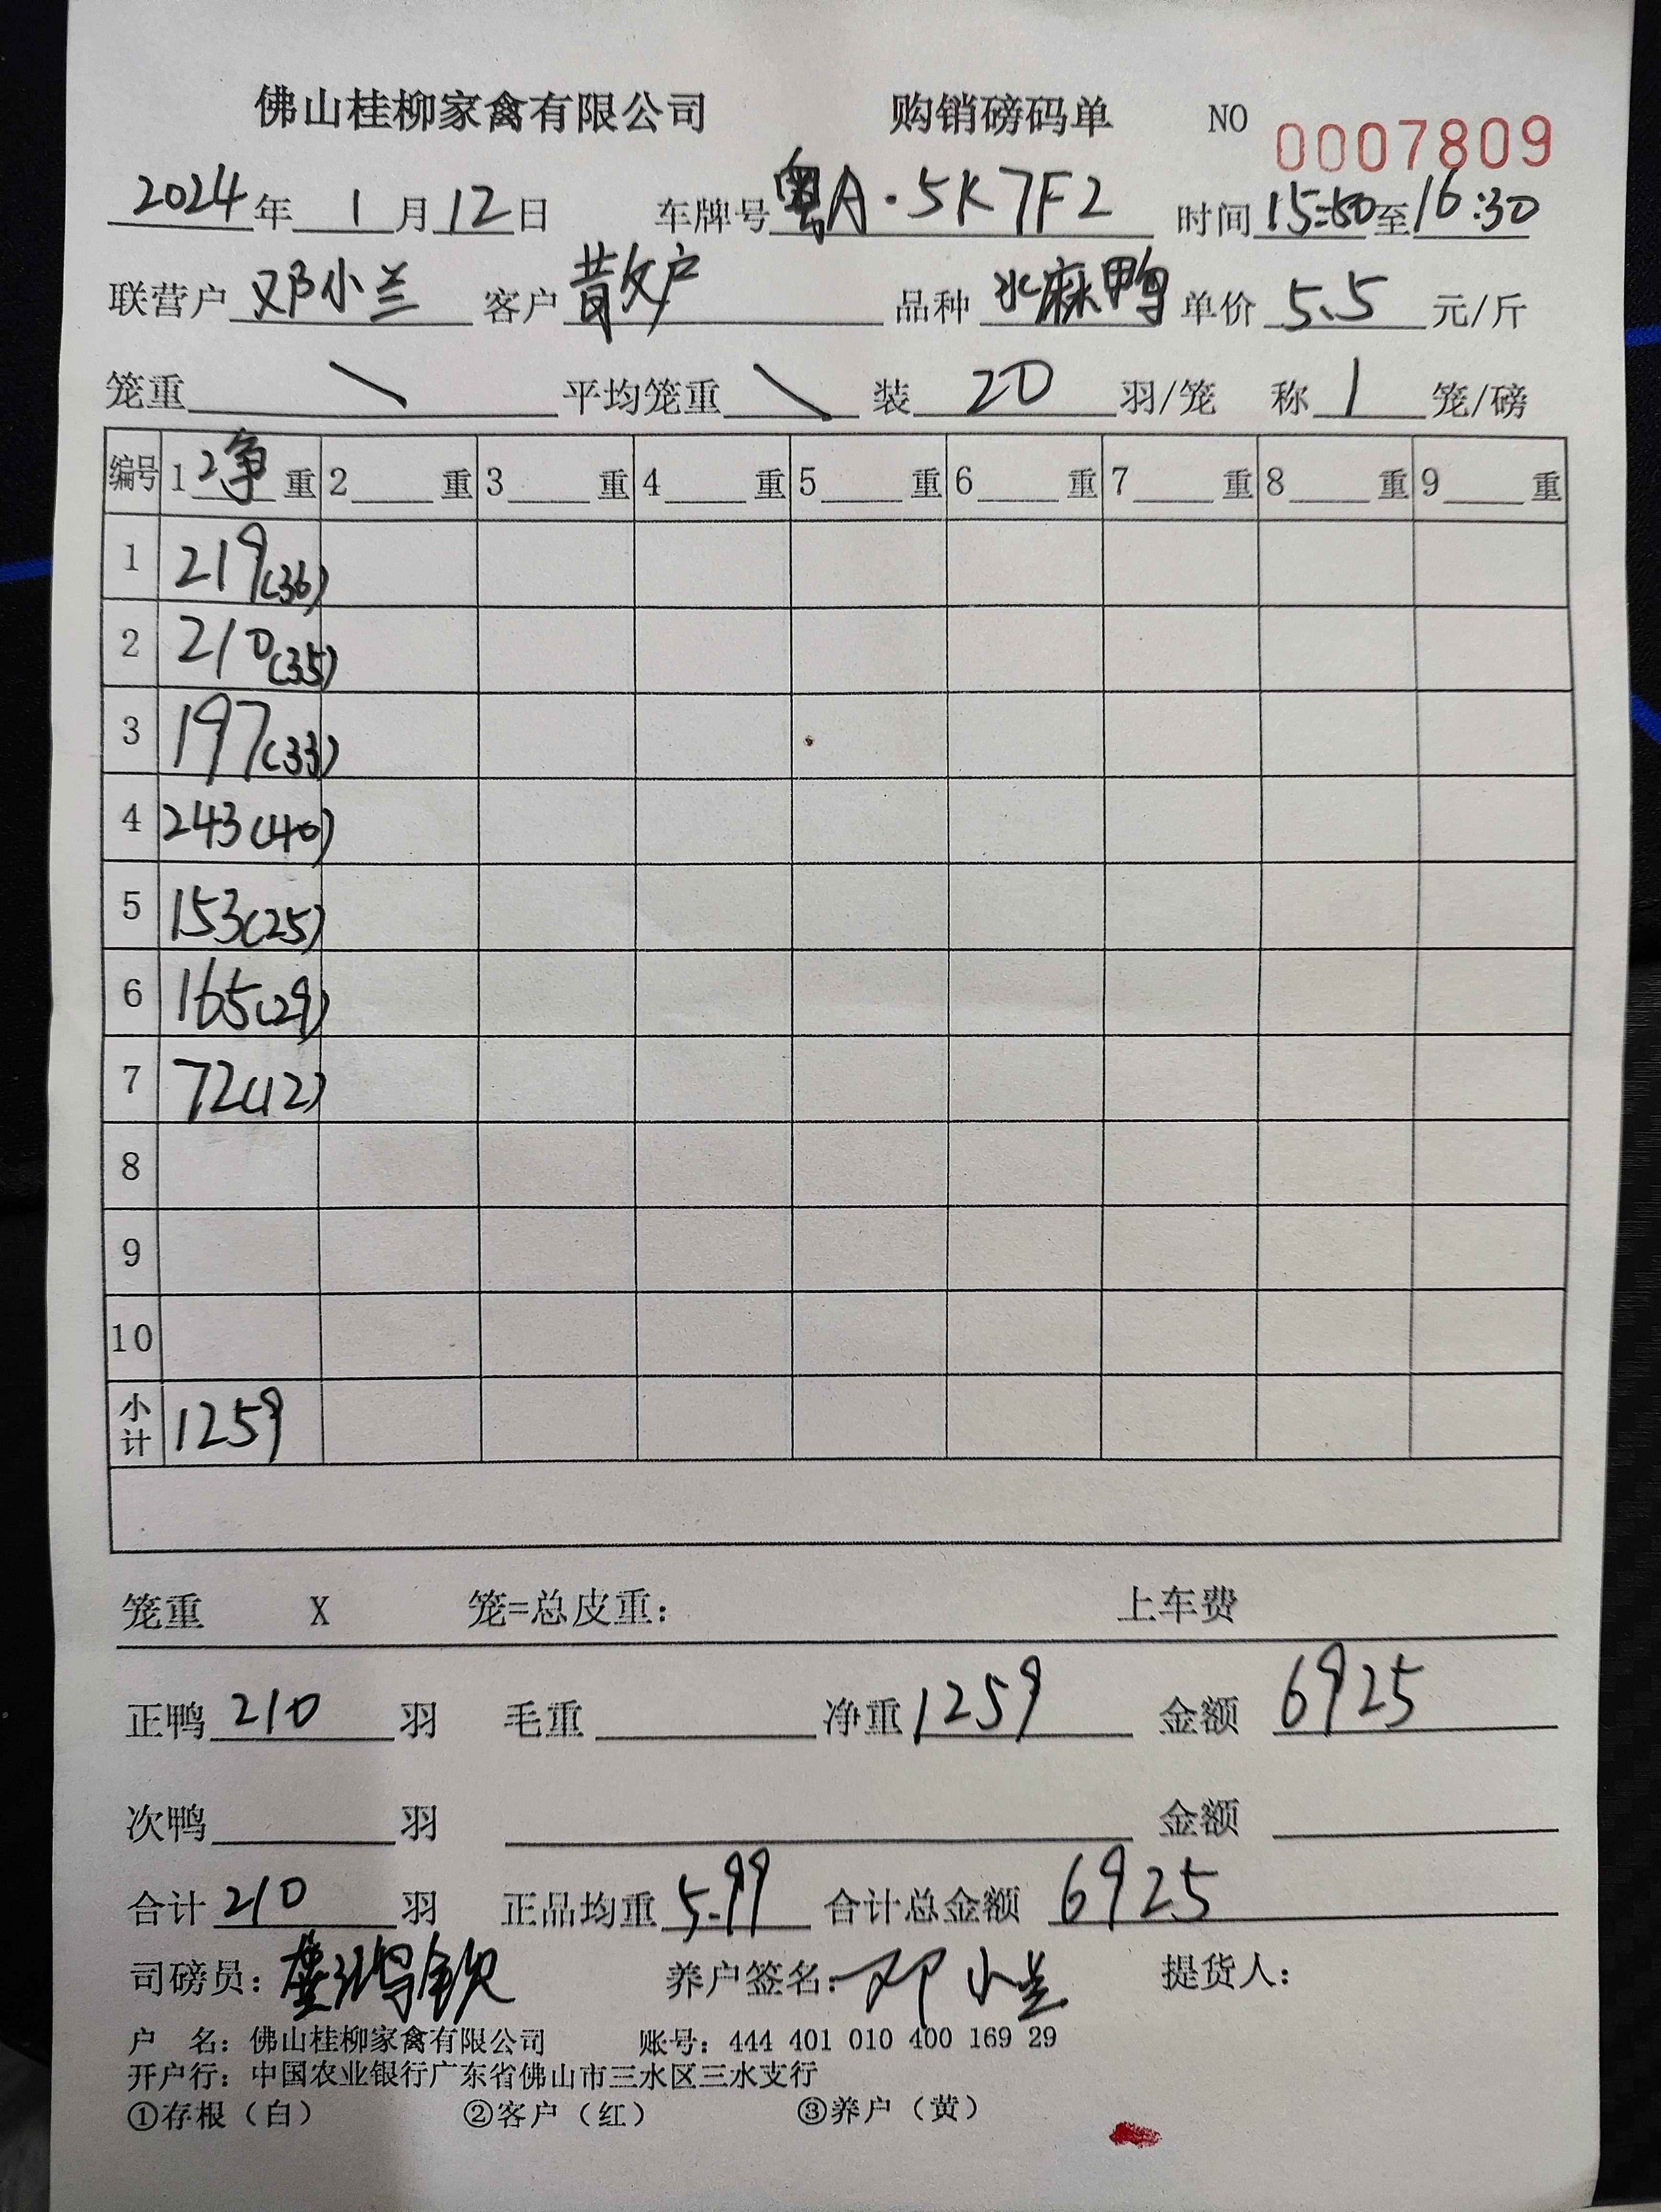 佛山桂柳家禽有限公司 购销磅码单 NO 0007809
2024年 1月12日 车牌号粤A·5K7F2 时间15:50至16:30
联营户 邓小兰 客户 散户 品种 水麻鸭 单价 5.5 元/斤
笼重 \ 平均笼重 \ 装 20 羽/笼 称 1 笼/磅
编号 1 净 重 2 重 3 重 4 重 5 重 6 重 7 重 8 重 9 重
1 219(36)
2 210(35)
3 197(33)
4 243(40)
5 153(25)
6 165(29)
7 72(12)
8
9
10
小计 1259
笼重 X 笼=总皮重: 上车费
正鸭 210 羽 毛重 净重 1259 金额 6925
次鸭 羽 金额
合计 210 羽 正品均重 5.99 合计总金额 6925
司磅员: 养户签名: 邓小兰 提货人:
户 名: 佛山桂柳家禽有限公司 账号: 444 401 010 400 169 29
开户行: 中国农业银行广东省佛山市三水区三水支行
①存根（白） ②客户（红） ③养户（黄）